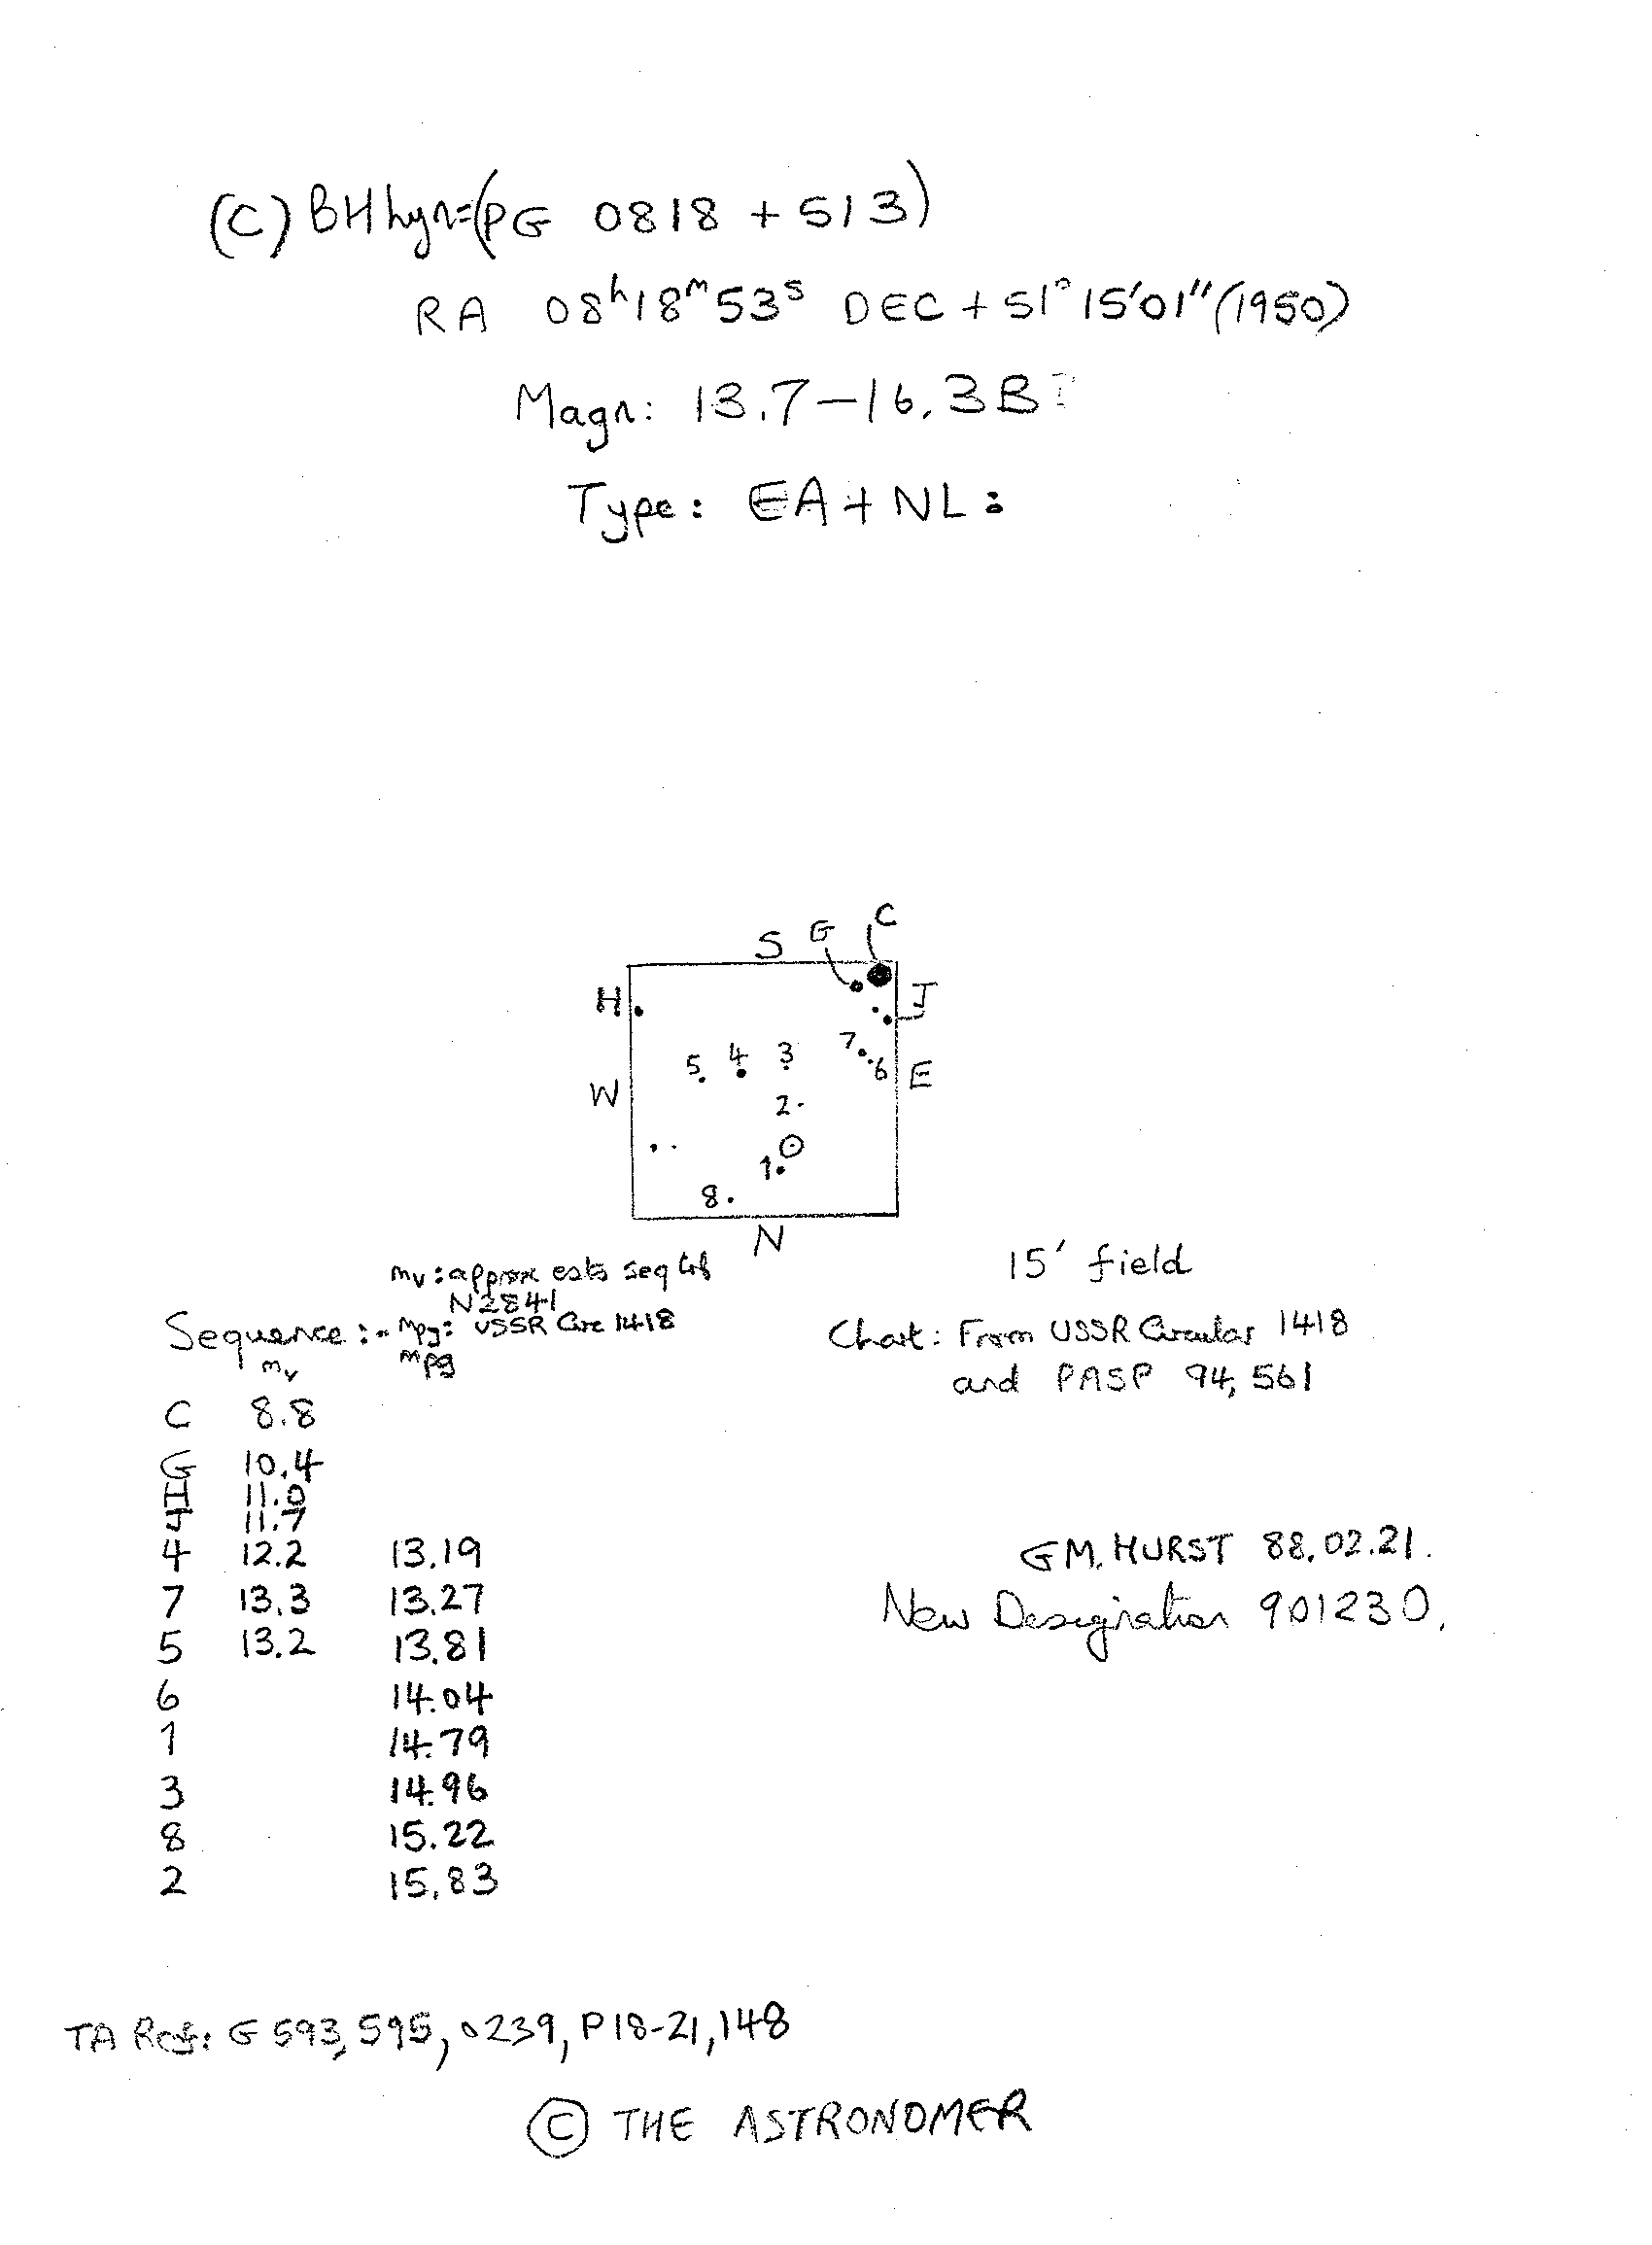 (C) BH Lyn=(PG 0818 + 513)
RA 08h18m53s DEC + 51° 15'01" (1950)
Magn: 13.7-16.3B
Type: EA + NL:
G C
S
H J
7
5 4 3
6 E
W
2
1
8
N
mv: approx ests seq
N2841
15' field
Sequence:- mpg: USSR Circ 1418
mv mpg
Chart: From USSR Circular 1418
and PASP 94, 561
C 8.8
G 10.4
H 11.0
J 11.7
4 12.2 13.19
7 13.3 13.27
5 13.2 13.81
6 14.04
1 14.79
3 14.96
8 15.22
2 15.83
GM. HURST 88.02.21.
New Designation 901230.
TA Ref: G 593, 595, 0239, P18-21, 148
© THE ASTRONOMER